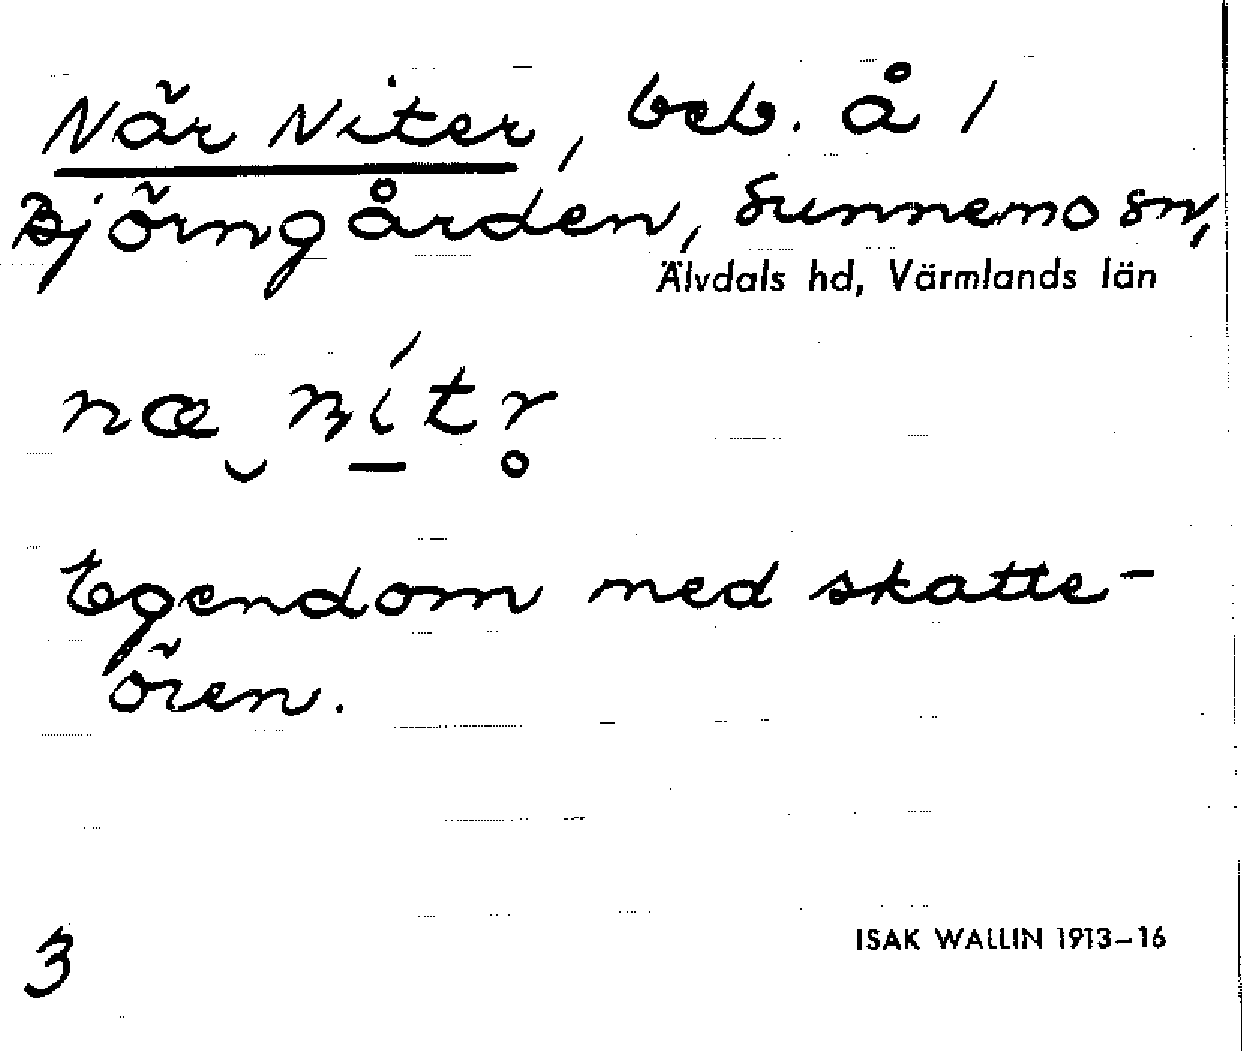 När Niter, beb. å 1
Björngården, Sunnemo sn,
Älvdals hd, Värmlands län
Egendom med skatte-
ören.
3
ISAK WALLIN 1913–16